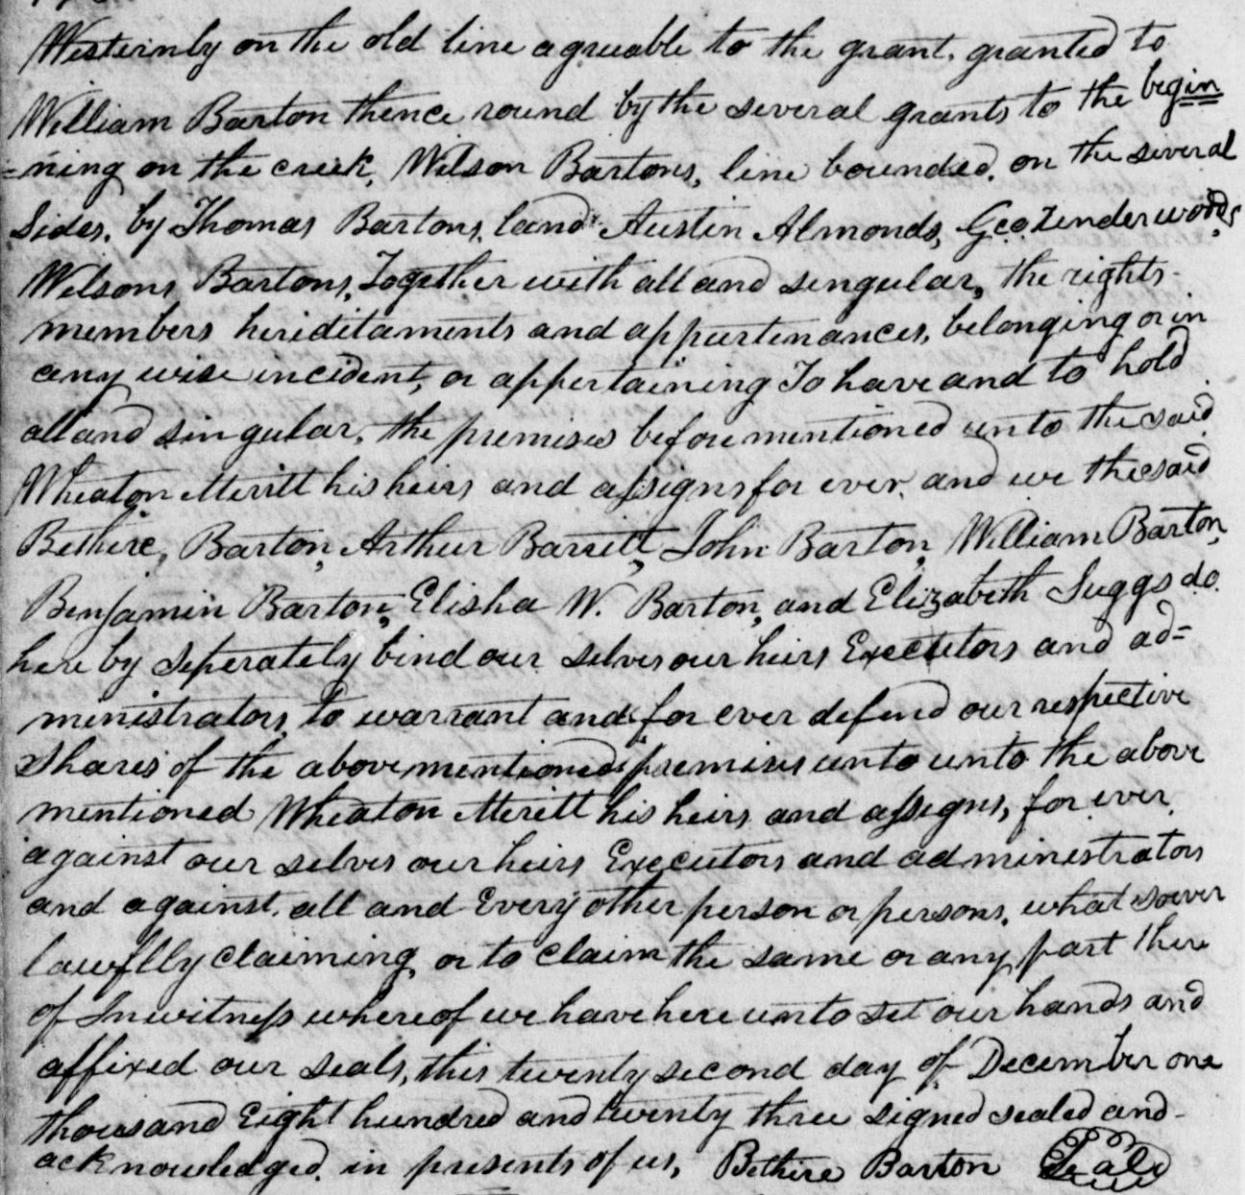 Westernly on the old line agreuable to the grant, granted to
William Barton thence round by the several grants to the begin
=ning on the creek, Wilson Bartons, line bounded, on the several
Sides, by Thomas Bartons, land Austin Almonds, Geo. Underwoods,
Wilsons Bartons, Together with all and singular, the rights
members heriditaments and appurtenances, belonging or in
any wise incident, or appertaining To have and to hold
all and singular, the premises before mentioned unto the said
Wheaton Meritt his heirs and assigns for ever. and we the said
Bethire, Barton, Arthur Barrett, John Barton, William Barton,
Benjamin Barton, Elisha W. Barton, and Elizabeth Suggs do
here by seperately bind our selves our heirs Executors and ad=
ministrators, to warrant and for ever defend our respective
Shares of the above mentioned premises unto unto the above
mentioned Wheaton Meritt his heirs and assigns, for ever,
against our selves our heirs Executors and administrators
and against, all and Every other person or persons, what soever
lawflly claiming, or to claim the same or any part there
of In witness whereof we have here unto set our hands and
affixed our seals, this twenty second day of December one
thousand Eight hundred and twenty three signed sealed and
acknowledged, in presents of us, Bethire Barton Seal